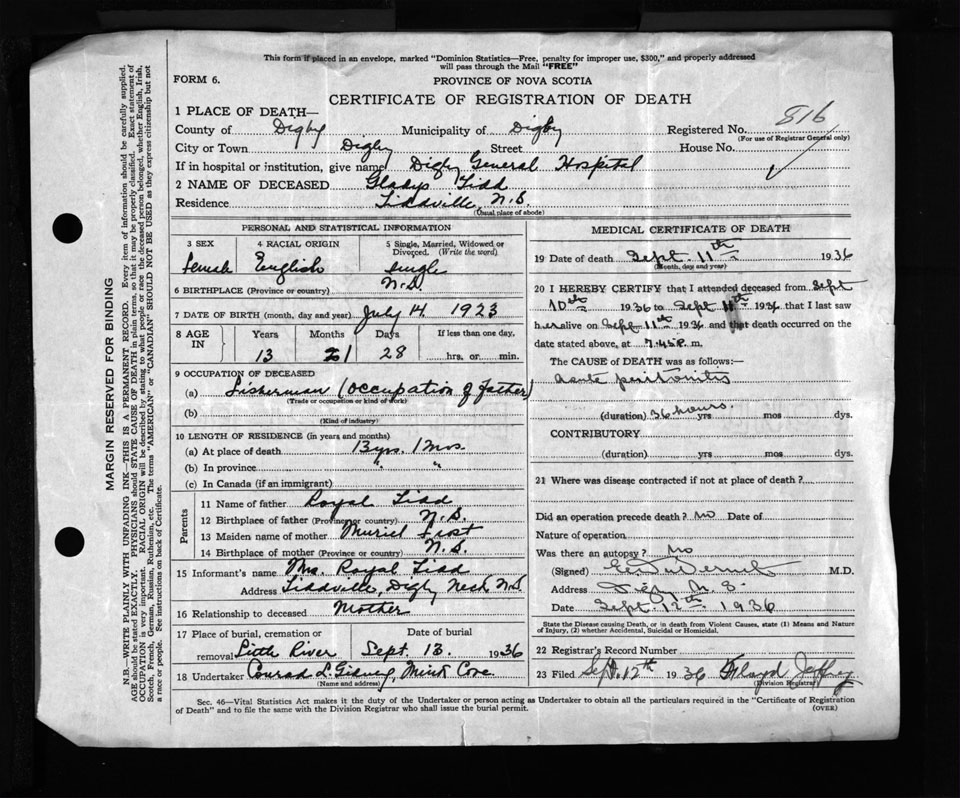 This form if placed in an envelope, marked "Dominion Statistics—Free, penalty for improper use, $300," and properly addressed
will pass through the Mail "FREE"
FORM 6.
PROVINCE OF NOVA SCOTIA
CERTIFICATE OF REGISTRATION OF DEATH
816
1 PLACE OF DEATH—
County of Digby Municipality of Digby Registered No.
(For use of Registrar General only)
City or Town Digby Street House No.
If in hospital or institution, give name Digby General Hospital
2 NAME OF DECEASED Gladys Tidd
Residence Tiddville, N.S.
(Usual place of abode)
PERSONAL AND STATISTICAL INFORMATION
3 SEX 4 RACIAL ORIGIN 5 Single, Married, Widowed or
Divorced. (Write the word)
Female English Single
N.S.
6 BIRTHPLACE (Province or country)
7 DATE OF BIRTH (month, day and year) July 14 1923
8 AGE IN Years Months Days If less than one day.
13 1 28 hrs. or min.
9 OCCUPATION OF DECEASED
(a) Fisherman (Occupation of Father)
(Trade or occupation or kind of work)
(b)
(Kind of industry)
10 LENGTH OF RESIDENCE (in years and months)
(a) At place of death 13 yrs. 1 mos.
(b) In province " "
(c) In Canada (if an immigrant)
Parents
11 Name of father Royal Tidd
12 Birthplace of father (Province or country) N.S.
13 Maiden name of mother Muriel Frost
14 Birthplace of mother (Province or country) N.S.
15 Informant's name Mrs. Royal Tidd
Address Tiddville, Digby Neck N.S
16 Relationship to deceased Mother
17 Place of burial, cremation or removal Little River
Date of burial Sept. 13. 1936
18 Undertaker Conrad L. Gidney, Mink Cove
(Name and address)
MEDICAL CERTIFICATE OF DEATH
19 Date of death Sept. 11th 1936
(Month, day and year)
20 I HEREBY CERTIFY that I attended deceased from Sept
10th 1936 to Sept 11th 1936 that I last saw
her alive on Sept 11th 1936 and that death occurred on the
date stated above, at 7.45 P. m.
The CAUSE of DEATH was as follows:—
Acute peritonitis
(duration) 36 hours. yrs mos dys.
CONTRIBUTORY
(duration) yrs mos dys.
21 Where was disease contracted if not at place of death?
Did an operation precede death? no Date of
Nature of operation
Was there an autopsy? no
(Signed) M.D.
Address Digby N.S.
Date Sept. 12th 1936
State the Disease causing Death, or in death from Violent Causes, state (1) Means and Nature
of Injury, (2) whether Accidental, Suicidal or Homicidal.
22 Registrar's Record Number
23 Filed Sept. 12th 1936 Floyd Jeffrey
(Division Registrar)
Sec. 46—Vital Statistics Act makes it the duty of the Undertaker or person acting as Undertaker to obtain all the particulars required in the "Certificate of Registration
of Death" and to file the same with the Division Registrar who shall issue the burial permit.
(OVER)
MARGIN RESERVED FOR BINDING
N.B.—WRITE PLAINLY WITH UNFADING INK—THIS IS A PERMANENT RECORD. Every item of information should be carefully supplied.
AGE should be stated EXACTLY. PHYSICIANS should STATE CAUSE OF DEATH in plain terms, so that it may be properly classified. Exact statement of
OCCUPATION is very important. RACIAL ORIGIN will be described by stating to what people or race the deceased person belonged, whether English, Irish,
Scotch, French, German, Russian, Ruthenian, etc. The terms "AMERICAN" or "CANADIAN" SHOULD NOT BE USED as they express citizenship but not
a race or people. See instructions on back of Certificate.